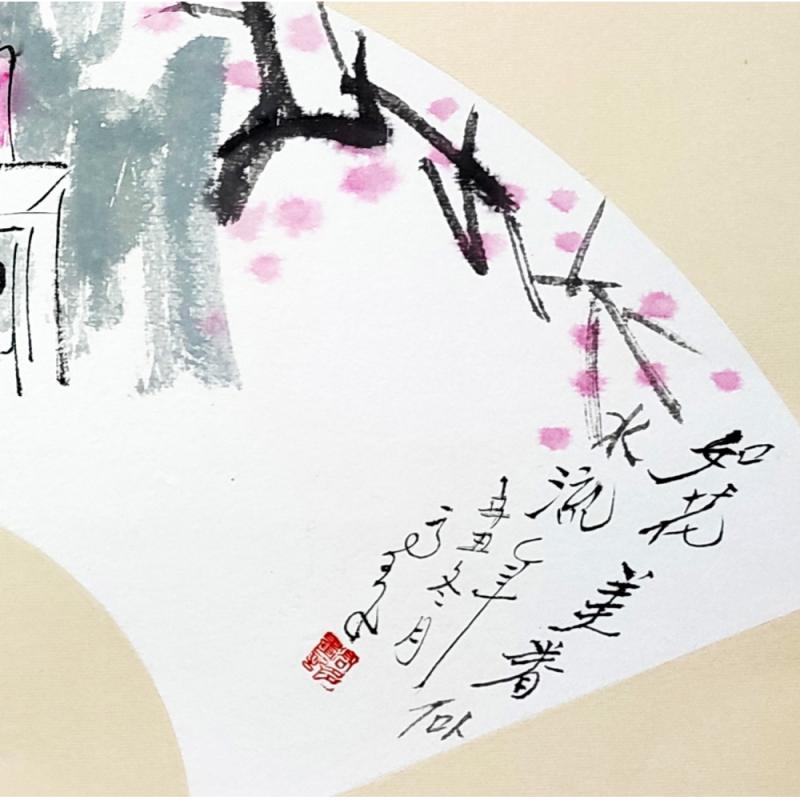 如花美眷似
水流年
辛丑冬月